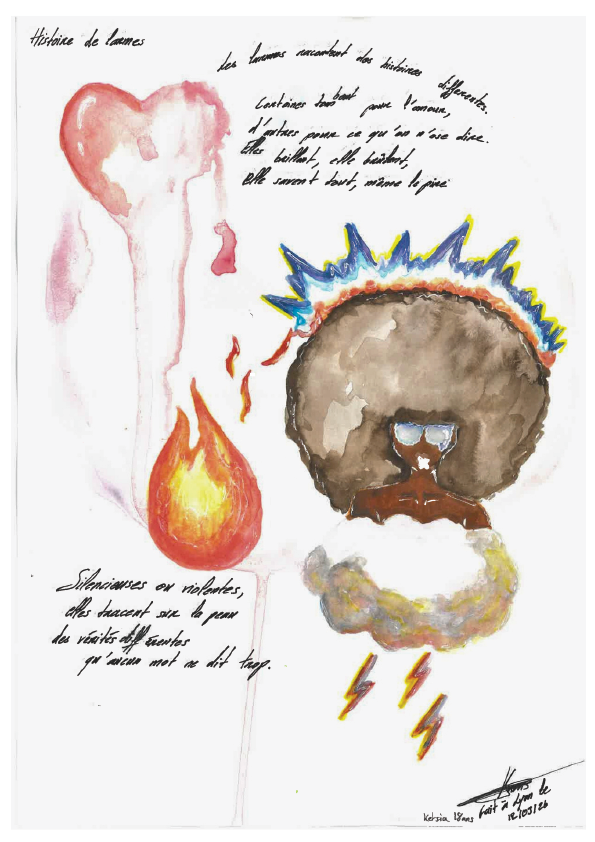 Histoire de larmes
Les larmes racontent des histoires différentes.
Certaines tombent pour l'amour,
d'autres pour ce qu'on n'ose dire.
Elles brillent, elle brûlent,
Elle savent tout, même le pire
Silencieuses ou violentes,
elles tracent sur la peau
des vérités différentes
qu'aucun mot ne dit trop.
Fait à Lyon le
12/03/26
Ketsia 18ans